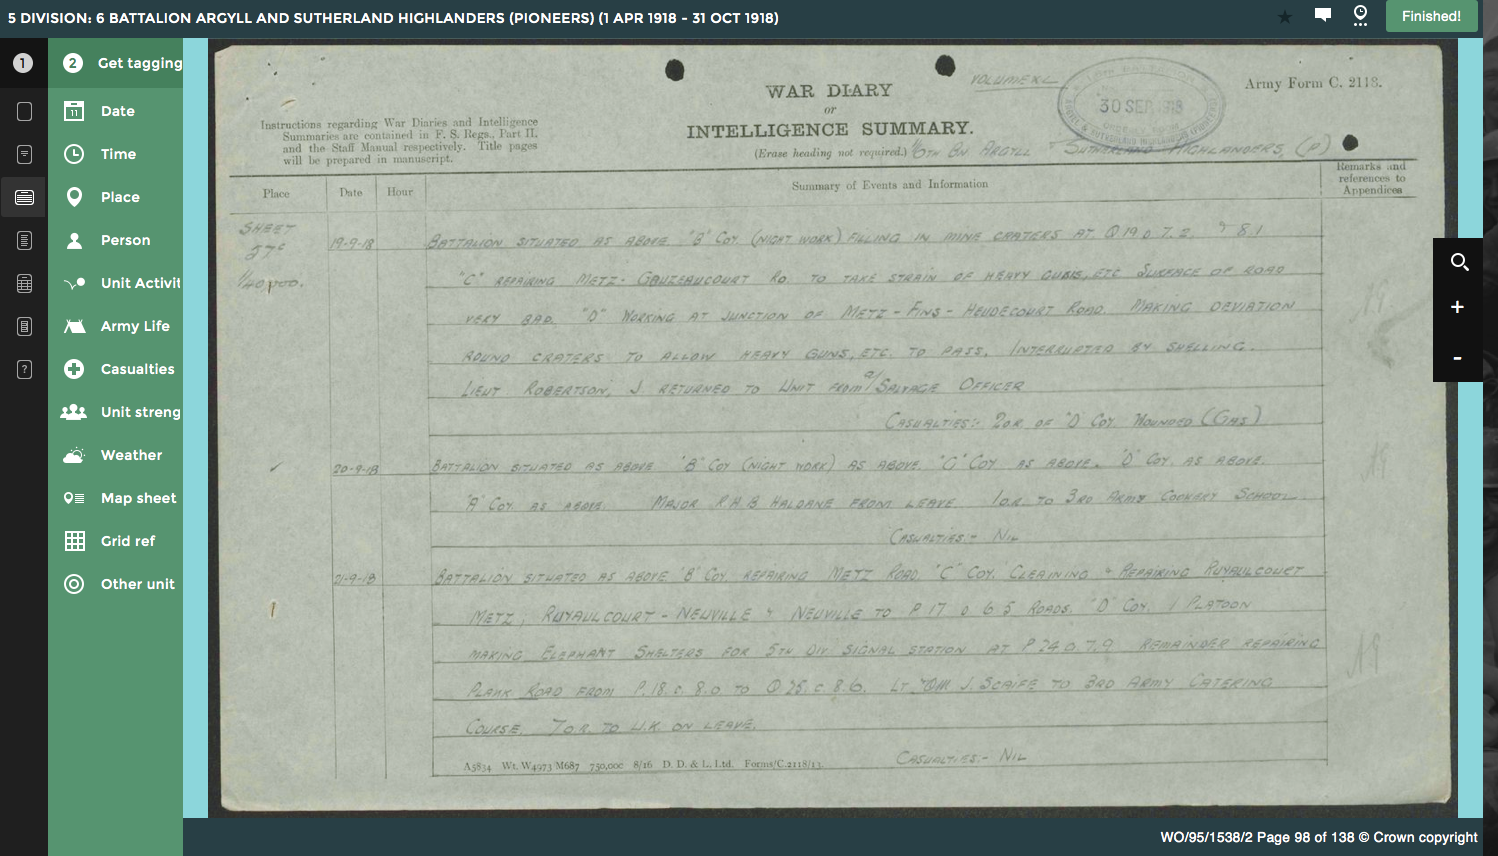 5 DIVISION: 6 BATTALION ARGYLL AND SUTHERLAND HIGHLANDERS (PIONEERS) (1 APR 1918 - 31 OCT 1918)
Finished!
1
2 Get tagging
11 Date
Time
Place
Person
Unit Activit
Army Life
Casualties
Unit streng
Weather
Map sheet
Grid ref
Other unit
?
+
-
VOLUME
30 SEP 1918
Army Form C. 2118.
WAR DIARY
or
INTELLIGENCE SUMMARY.
(Erase heading not required.)
Instructions regarding War Diaries and Intelligence
Summaries are contained in F. S. Regs., Part II.
and the Staff Manual respectively. Title pages
will be prepared in manuscript.
6TH BN. ARGYLL & SUTHERLAND HIGHLANDERS, (P)
Place
Date
Hour
Summary of Events and Information
Remarks and
references to
Appendices
SHEET
57c
1/40,000.
19-9-18
BATTALION SITUATED AS ABOVE. "B" COY. (NIGHT WORK) FILLING IN MINE CRATERS AT Q 19 D 7.2. & 8.1
"C" REPAIRING METZ - GOUZEAUCOURT RD. TO TAKE STRAIN OF HEAVY GUNS, ETC SURFACE OF ROAD
VERY BAD. "D" WORKING AT JUNCTION OF METZ - FINS - HEUDECOURT ROAD. MAKING DEVIATION
ROUND CRATERS TO ALLOW HEAVY GUNS, ETC. TO PASS. INTERRUPTED BY SHELLING.
LIEUT ROBERTSON, J RETURNED TO UNIT FROM a/ SALVAGE OFFICER
CASUALTIES:- 2 O.R. OF "D" COY. WOUNDED (GAS)
20-9-18
BATTALION SITUATED AS ABOVE. "B" COY (NIGHT WORK) AS ABOVE. "C" COY AS ABOVE. "D" COY. AS ABOVE.
"A" COY AS ABOVE. MAJOR R.H.B. HALDANE FROM LEAVE. 1 O.R. TO 3RD ARMY COOKERY SCHOOL
CASUALTIES:- NIL
21-9-18
BATTALION SITUATED AS ABOVE "B" COY. REPAIRING METZ ROAD. "C" COY. CLEANING & REPAIRING RUYAULCOURT
METZ; RUYAULCOURT - NEUVILLE & NEUVILLE TO P 17 D 6 5 ROADS. "D" COY. 1 PLATOON
MAKING ELEPHANT SHELTERS FOR 5TH DIV SIGNAL STATION AT P 24 D. 7.9 REMAINDER REPAIRING
PLANK ROAD FROM P.18. C. 8.0 TO Q 25. C. 8.6. LT. J. SCAIFE TO 3RD ARMY CATERING
COURSE. 7 O.R. TO U.K. ON LEAVE.
CASUALTIES:- NIL
A5834 Wt. W4973 M687 750,000 8/16 D. D. & L. Ltd. Forms/C.2118/13.
WO/95/1538/2 Page 98 of 138 © Crown copyright